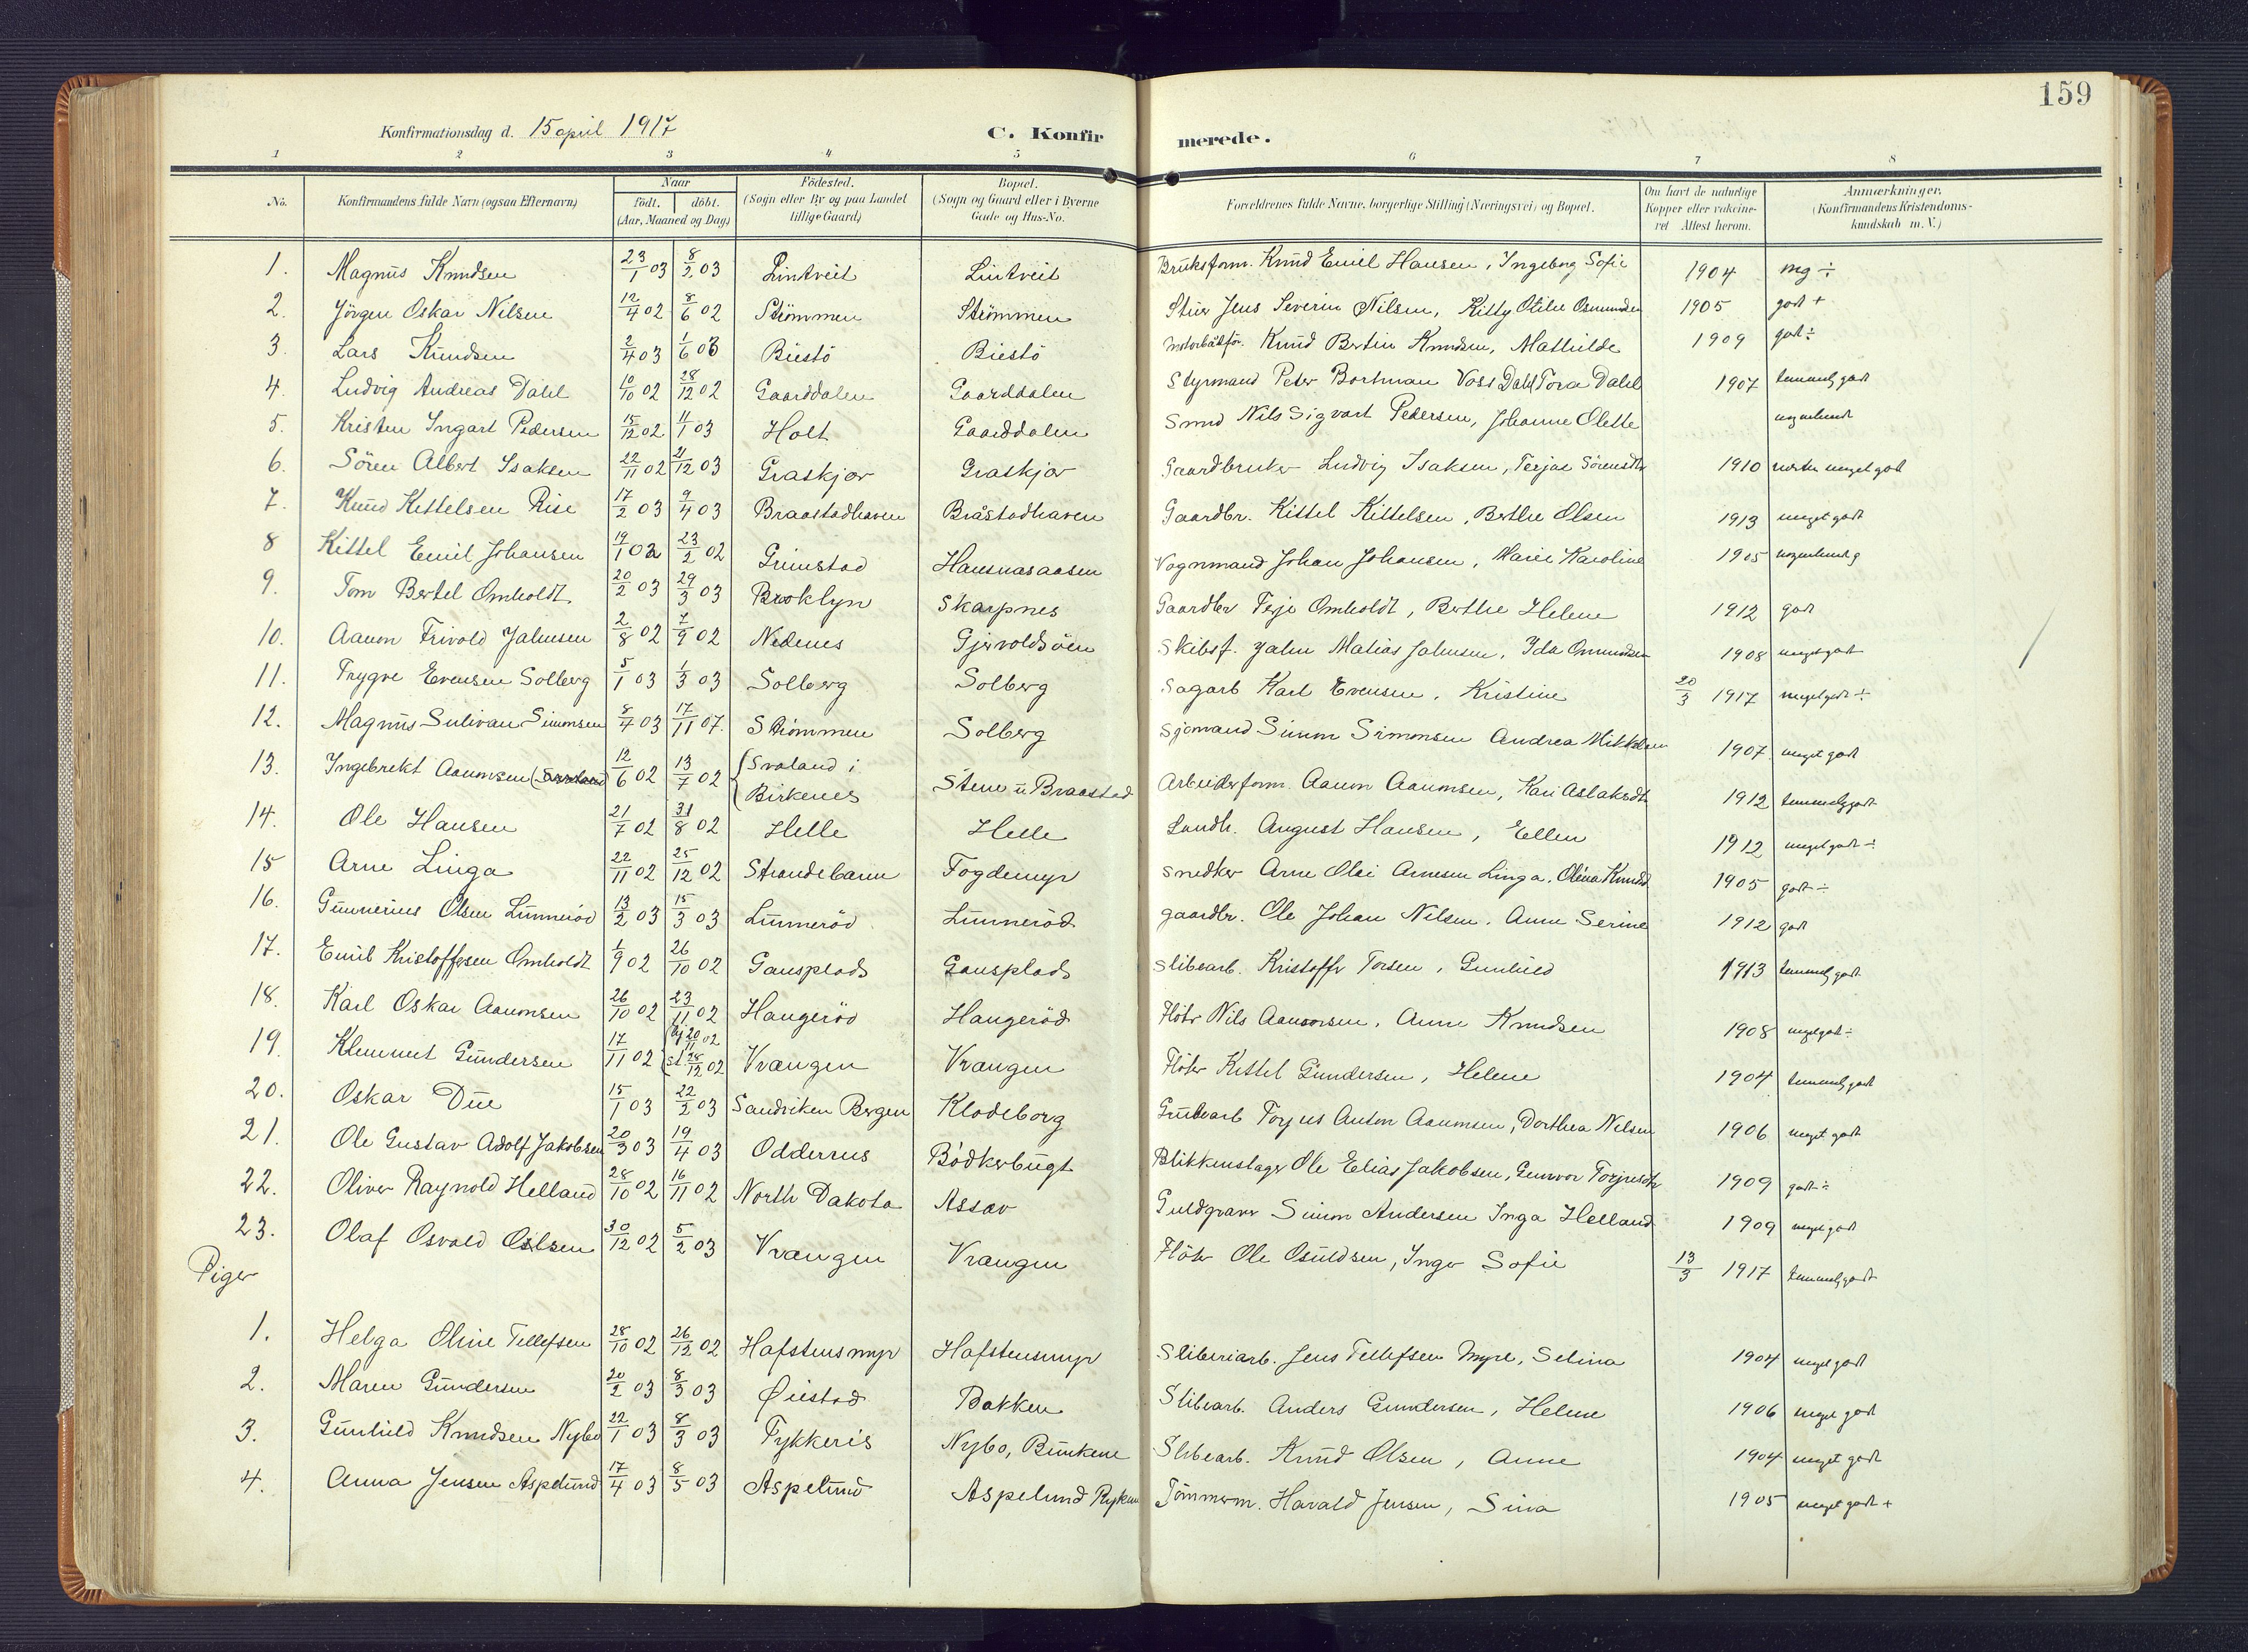 159
Konfirmationsdag d. 15 april 1917
C. Konfirmerede.
1 2 3 4 5 6 7 8
No. Konfirmandens fulde Navn (ogsaa Efternavn) Naar født. døbt. (Aar, Maaned og Dag) Fødested. (Sogn eller By og paa Landet tillige Gaard) Bopæl. (Sogn og Gaard eller i Byerne Gade og Hus-No. Forældrenes fulde Navne, borgerlige Stilling (Næringsvei) og Bopæl. Om havt de naturlige Kopper eller vakcineret Attest herom. Anmærkninger. (Konfirmandens Kristendomskundskab m. V.)
1. Magnus Knudsen 23/1 03 8/2 03 Lintveit Lintveit Bruksform. Knud Emil Hansen, Ingeborg Sofie 1904 mg ÷
2. Jörgen Oskar Nilsen 12/4 02 8/6 02 Strömmen Strömmen Jens Severin Nilsen, Kitty Otilie Osmundsen 1905 godt +
3. Lars Knudsen 2/4 03 1/6 03 Biestö Biestö Motorbåtför. Knud Bertin Knudsen, Mathilde 1909 godt ÷
4. Ludvig Andreas Dahl 10/10 02 28/12 02 Gaarddalen Gaarddalen Styrmand Peter Bortman Voss Dahl, Tora Dahl 1907 temmelig godt
5. Kristen Ingart Pedersen 15/12 02 11/1 03 Holt Gaarddalen Smed Nils Sigvart Pedersen, Johanne Olette nogenlunde
6. Sören Albert Isaksen 22/11 02 21/12 03 Graskjær Graskjær Gaardbruker Ludvig Isaksen, Terjae Sörensdtr 1910 næsten meget godt
7. Knud Kettelsen Rise 17/2 03 9/4 03 Braastadhaven Bråstadhaven Gaardbr. Kittel Kittelsen, Berthe Olsen 1913 meget godt
8 Kittel Emil Johansen 19/1 02 23/2 02 Grimstad Hausnasaasen Vognmand Johan Johansen, Marie Karoline 1905 nogenlunde g
9. Tom Bertel Omholdt 20/2 03 29/3 03 Brooklyn Skarpnes Gaardbr Terje Omholdt, Berthe Helene 1912 godt
10. Aanon Frivold Jahnsen 2/8 02 7/9 02 Nedenes Gjervoldsöen Skibsf. Jahn Matias Jahnsen, Ida Omundsen 1908 meget godt
11. Trygve Evensen Solberg 5/1 03 1/3 03 Solberg Solberg Sagarb Karl Evensen, Kristine 20/3 1917 meget godt ÷
12. Magnus Sulivan Simonsen 8/4 03 17/11 07. Strömmen Solberg Sjömand Simon Simonsen Andrea Mikkelsen 1907. meget godt
13. Ingebrekt Aanonsen (Svaland 12/6 02 13/7 02 {Svaland i Birkenes Stene u Braastad Arbeiderform. Aanon Aanonsen, Kari Aslaksdtr 1912 temmelig godt
14. Ole Hansen 21/7 02 31/8 02 Helle Helle Landh. August Hansen, Ellen 1912 meget godt ÷
15 Arne Linga 22/11 02 25/12 02 Strandebarm Fogdemyr Snedker Arne Olai Arnesen Linga, Olena Knudsd 1905 godt ÷
16. Gunnerius Olsen Lunneröd 13/2 03 15/3 03 Lunneröd Lunneröd gaardbr. Ole Johan Nilsen, Anne Serine 1912 godt
17. Emil Kristoffersen Omholdt 1/9 02 26/10 02 Gausplads Gausplads Slibearb. Kristoffer Torsen, Gunhild 1913 temmelig godt
18. Karl Oskar Aanonsen 26/10 02 23/11 02 Haugeröd Haugeröd Flöter Nils Aanonsen, Anne Knudsen 1908 meget godt ÷
19. Klemmet Gundersen 17/11 02 {hj 20/11 02 st 28/12 02 Vrangen Vrangen Flöter Kittel Gundersen, Helene 1904 temmelig godt
20. Oskar Due 15/1 03 22/2 03 Sandviken Bergen Klodeborg Grubearb Torjus Anton Aanonsen, Dorthea Nilsen 1906 meget godt
21. Ole Gustav Adolf Jakobsen 20/3 03 19/4 03 Oddernes Bödkerbugt Blikkenslager Ole Elias Jakobsen, Gunvor Torjusdtr 1909 godt ÷
22. Oliver Raynold Helland 28/10 02 16/11 02 North Dakota Assav Guldgraver Simon Andersen Inga Helland 1909 meget godt
23. Olaf Osvald Oslsen 30/12 02 5/2 03 Vrangen Vrangen Flöter Ole Osuldsen, Inger Sofie 13/3 1917 temmelig godt
Piger
1. Helga Oline Tellefsen 28/10 02 26/12 02 Hafstensmyr Hafstensmyr Sliberiarb. Jens Tellefsen Myre, Selina 1904 meget godt
2. Maren Gundersen 20/2 03 8/3 03 Øiestad Bakken Slibearb. Anders Gundersen, Helene 1906 meget godt
3. Gunhild Knudsen Nybo 22/1 03 8/3 03 Tykkeris Nybo, Bunkene Slibearb. Knud Olsen, Anne 1904 meget godt
4. Anna Jensen Aspelund 17/4 03 8/5 03 Aspelund Aspelund Ryken Tömmerm. Harald Jensen, Sina 1905 meget godt +